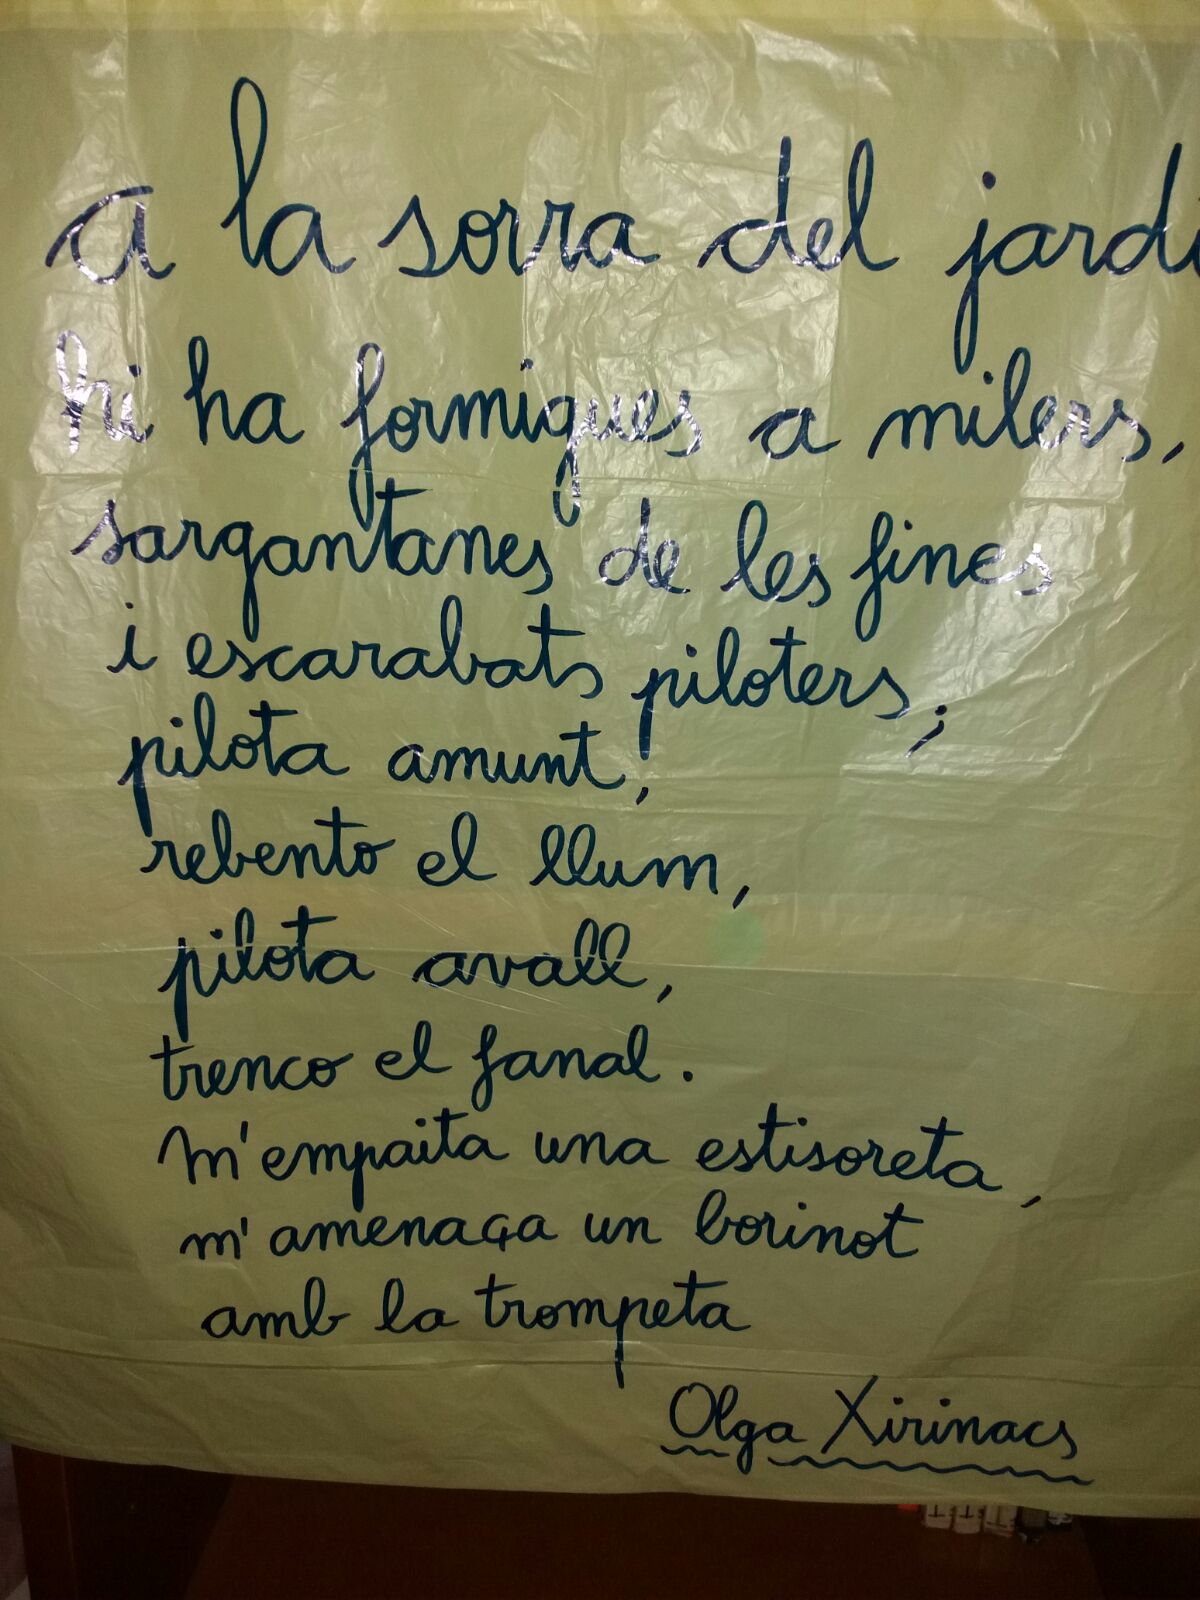 a la sorra del jardí
hi ha formigues a milers,
sargantanes de les fines
i escarabats piloters;
pilota amunt,
rebento el llum,
pilota avall,
trenco el fanal.
M'empaita una estisoreta,
m'amenaça un borinot
amb la trompeta
Olga Xirinacs